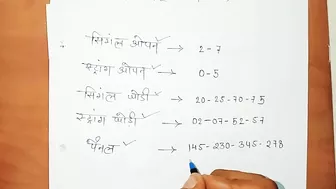 सिंगल ओपन ✓ → 2-7
स्ट्रांग ओपन ✓ → 0-5
सिंगल जोड़ी ✓ → 20-25-70-75
स्ट्रांग जोड़ी ✓ → 02-07-52-57
पैनल ✓ → 145-230-345-278